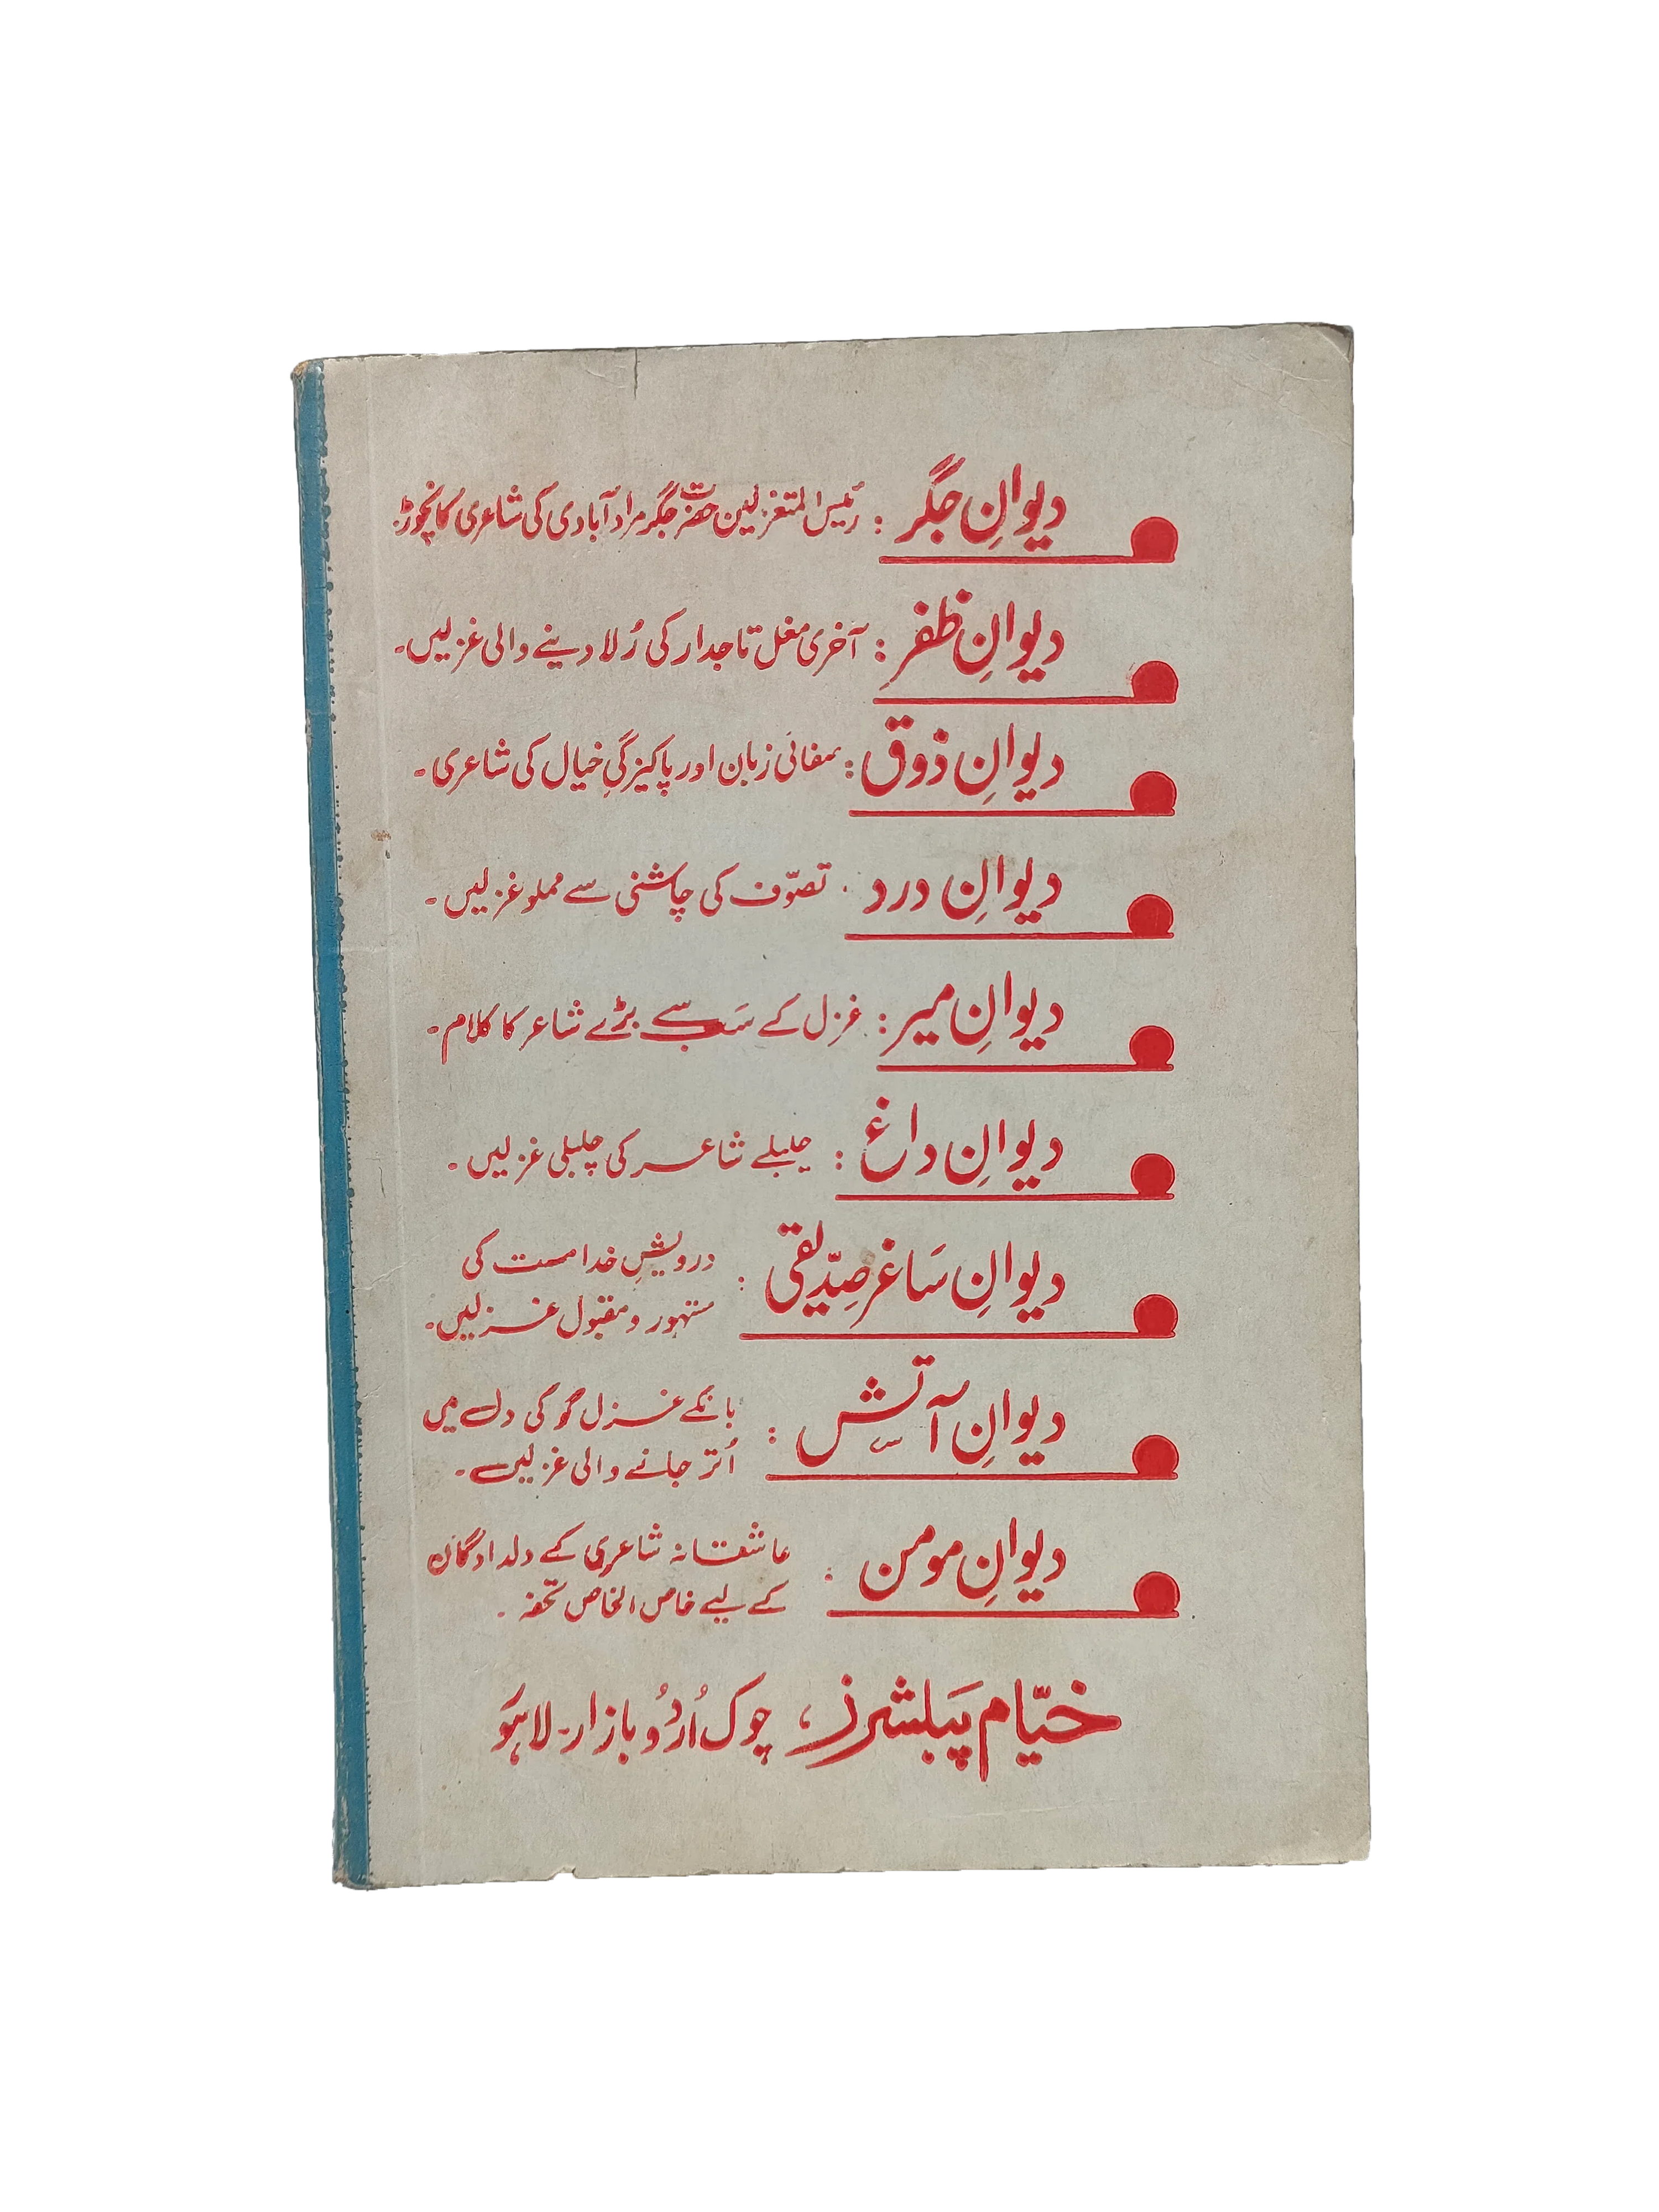 دیوانِ جگر : رئیس المتغزلین حضرت جگر مراد آبادی کی شاعری کا نچوڑ۔
دیوانِ ظفر : آخری مغل تاجدار کی رُلا دینے والی غزلیں۔
دیوانِ ذوق : صفائی زبان اور پاکیزگیِ خیال کی شاعری۔
دیوانِ درد : تصوّف کی چاشنی سے مملو غزلیں۔
دیوانِ میر : غزل کے سَب سے بڑے شاعر کا کلام۔
دیوانِ داغ : چلبلے شاعر کی چلبلی غزلیں۔
دیوانِ سَاغر صِدّیقی : درویشِ خدا مست کی
مشہور و مقبول غزلیں۔
دیوانِ آتِش : بانکے غزل گو کی دل میں
اُتر جانے والی غزلیں۔
دیوانِ مومن : عاشقانہ شاعری کے دلدادگان
کے لیے خاص الخاص تحفہ۔
خیّام پَبلشرز، چوک اُردُو بازار۔ لاہور